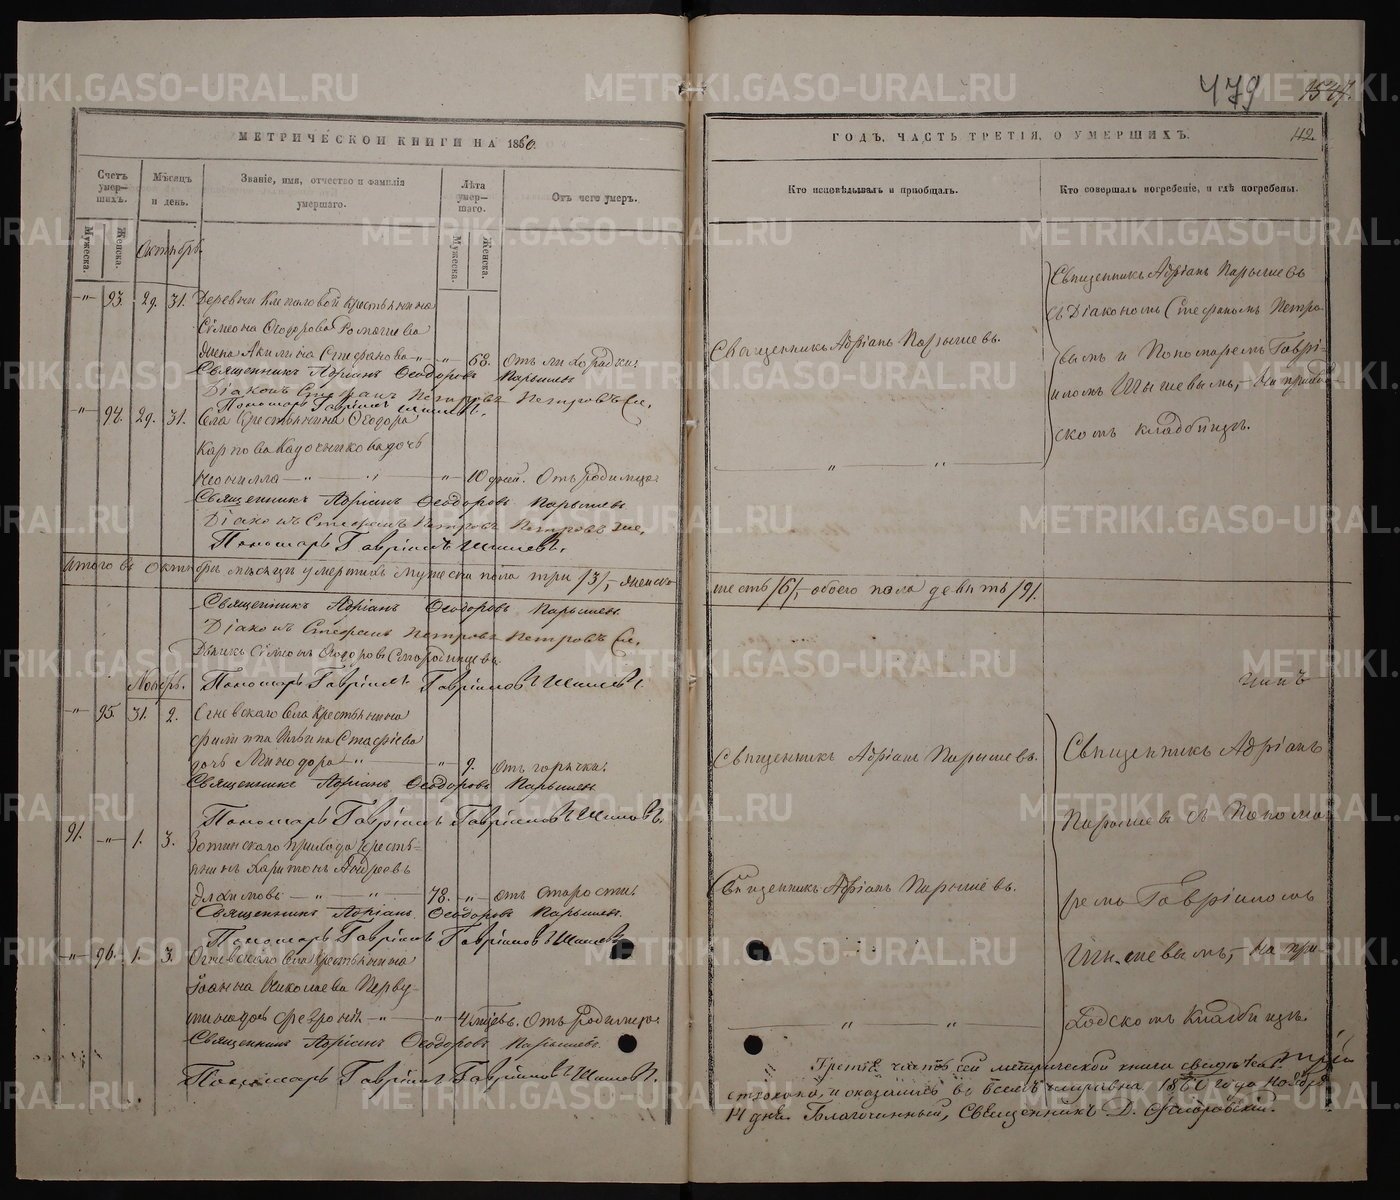 479
1527.
МЕТРИЧЕСКОЙ КНИГИ НА 1860.
ГОДЪ, ЧАСТЬ ТРЕТІЯ, О УМЕРШИХЪ.
112.
Счетъ умер-шихъ.
Мѣсяцъ и день.
Званіе, имя, отчество и фамилія умершаго.
Лѣта умер-шаго.
Отъ чего умеръ.
Кто исповѣдывалъ и пріобщалъ.
Кто совершалъ погребеніе, и гдѣ погребены.
Мужеска.
Женска.
Мужеска.
Женска.
Октябрь.
93. 29. 31. Деревни Клепаловой крестьянина
Сімеона Ѳеодорова
жена Акилина Стефанова 68. отъ лихорадки.
Священникъ Адріанъ Ѳеодоровъ Парышевъ
Діаконъ Стефанъ Петровъ Петровъ
Пономарь Гавріилъ Шишевъ.
Священникъ Адріанъ Парышевъ.
Священникъ Адріанъ Парышевъ
съ Діакономъ Стефаномъ Петро-
вымъ и Пономаремъ Гаврі-
иломъ Шишевымъ, на приход-
скомъ кладбищѣ.
94. 29. 31. Села крестьянина Ѳеодора
Карпова Кадочникова дочь
Неонилла 10 дней. Отъ родимца.
Священникъ Адріанъ Ѳеодоровъ Парышевъ
Діаконъ Стефанъ Петровъ Петровъ
Пономарь Гавріилъ Шишевъ.
Итого въ Октябрѣ мѣсяцѣ умершихъ мужеска пола три /3/, женска
шесть /6/, обоего пола девять /9/.
Священникъ Адріанъ Ѳеодоровъ Парышевъ
Діаконъ Стефанъ Петровъ Петровъ
Дьячекъ Сімеонъ Ѳеодоровъ
Пономарь Гавріилъ Гавріиловъ Шишевъ.
Ноябрь.
95. 31. 2. Огневскаго села крестьянина
Филиппа Ильина
дочь Минодора 9. отъ горячки.
Священникъ Адріанъ Ѳеодоровъ Парышевъ
Пономарь Гавріилъ Гавріиловъ Шишевъ.
Священникъ Адріанъ Парышевъ.
Священникъ Адріанъ
Парышевъ съ Понома-
ремъ Гавріиломъ
Шишевымъ, на при-
ходскомъ кладбищѣ.
91. 1. 3. Зотинскаго прихода кресть-
янинъ Харитонъ Андреевъ
78. отъ старости
Священникъ Адріанъ Ѳеодоровъ Парышевъ.
Пономарь Гавріилъ Гавріиловъ Шишевъ
Священникъ Адріанъ Парышевъ.
96. 1. 3. Огневскаго села крестьянина
Іоанна Николаева Перву-
шина дочь Феврония 4 мѣсяцевъ. Отъ родимца.
Священникъ Адріанъ Ѳеодоровъ Парышевъ.
Пономарь Гавріилъ Гавріиловъ Шишевъ.
Третья часть сей метрической книги
и оказалась во всемъ исправна. 1860 года Ноября
14 дня. Благочинный, Священникъ Д.
METRIKI.GASO-URAL.RU